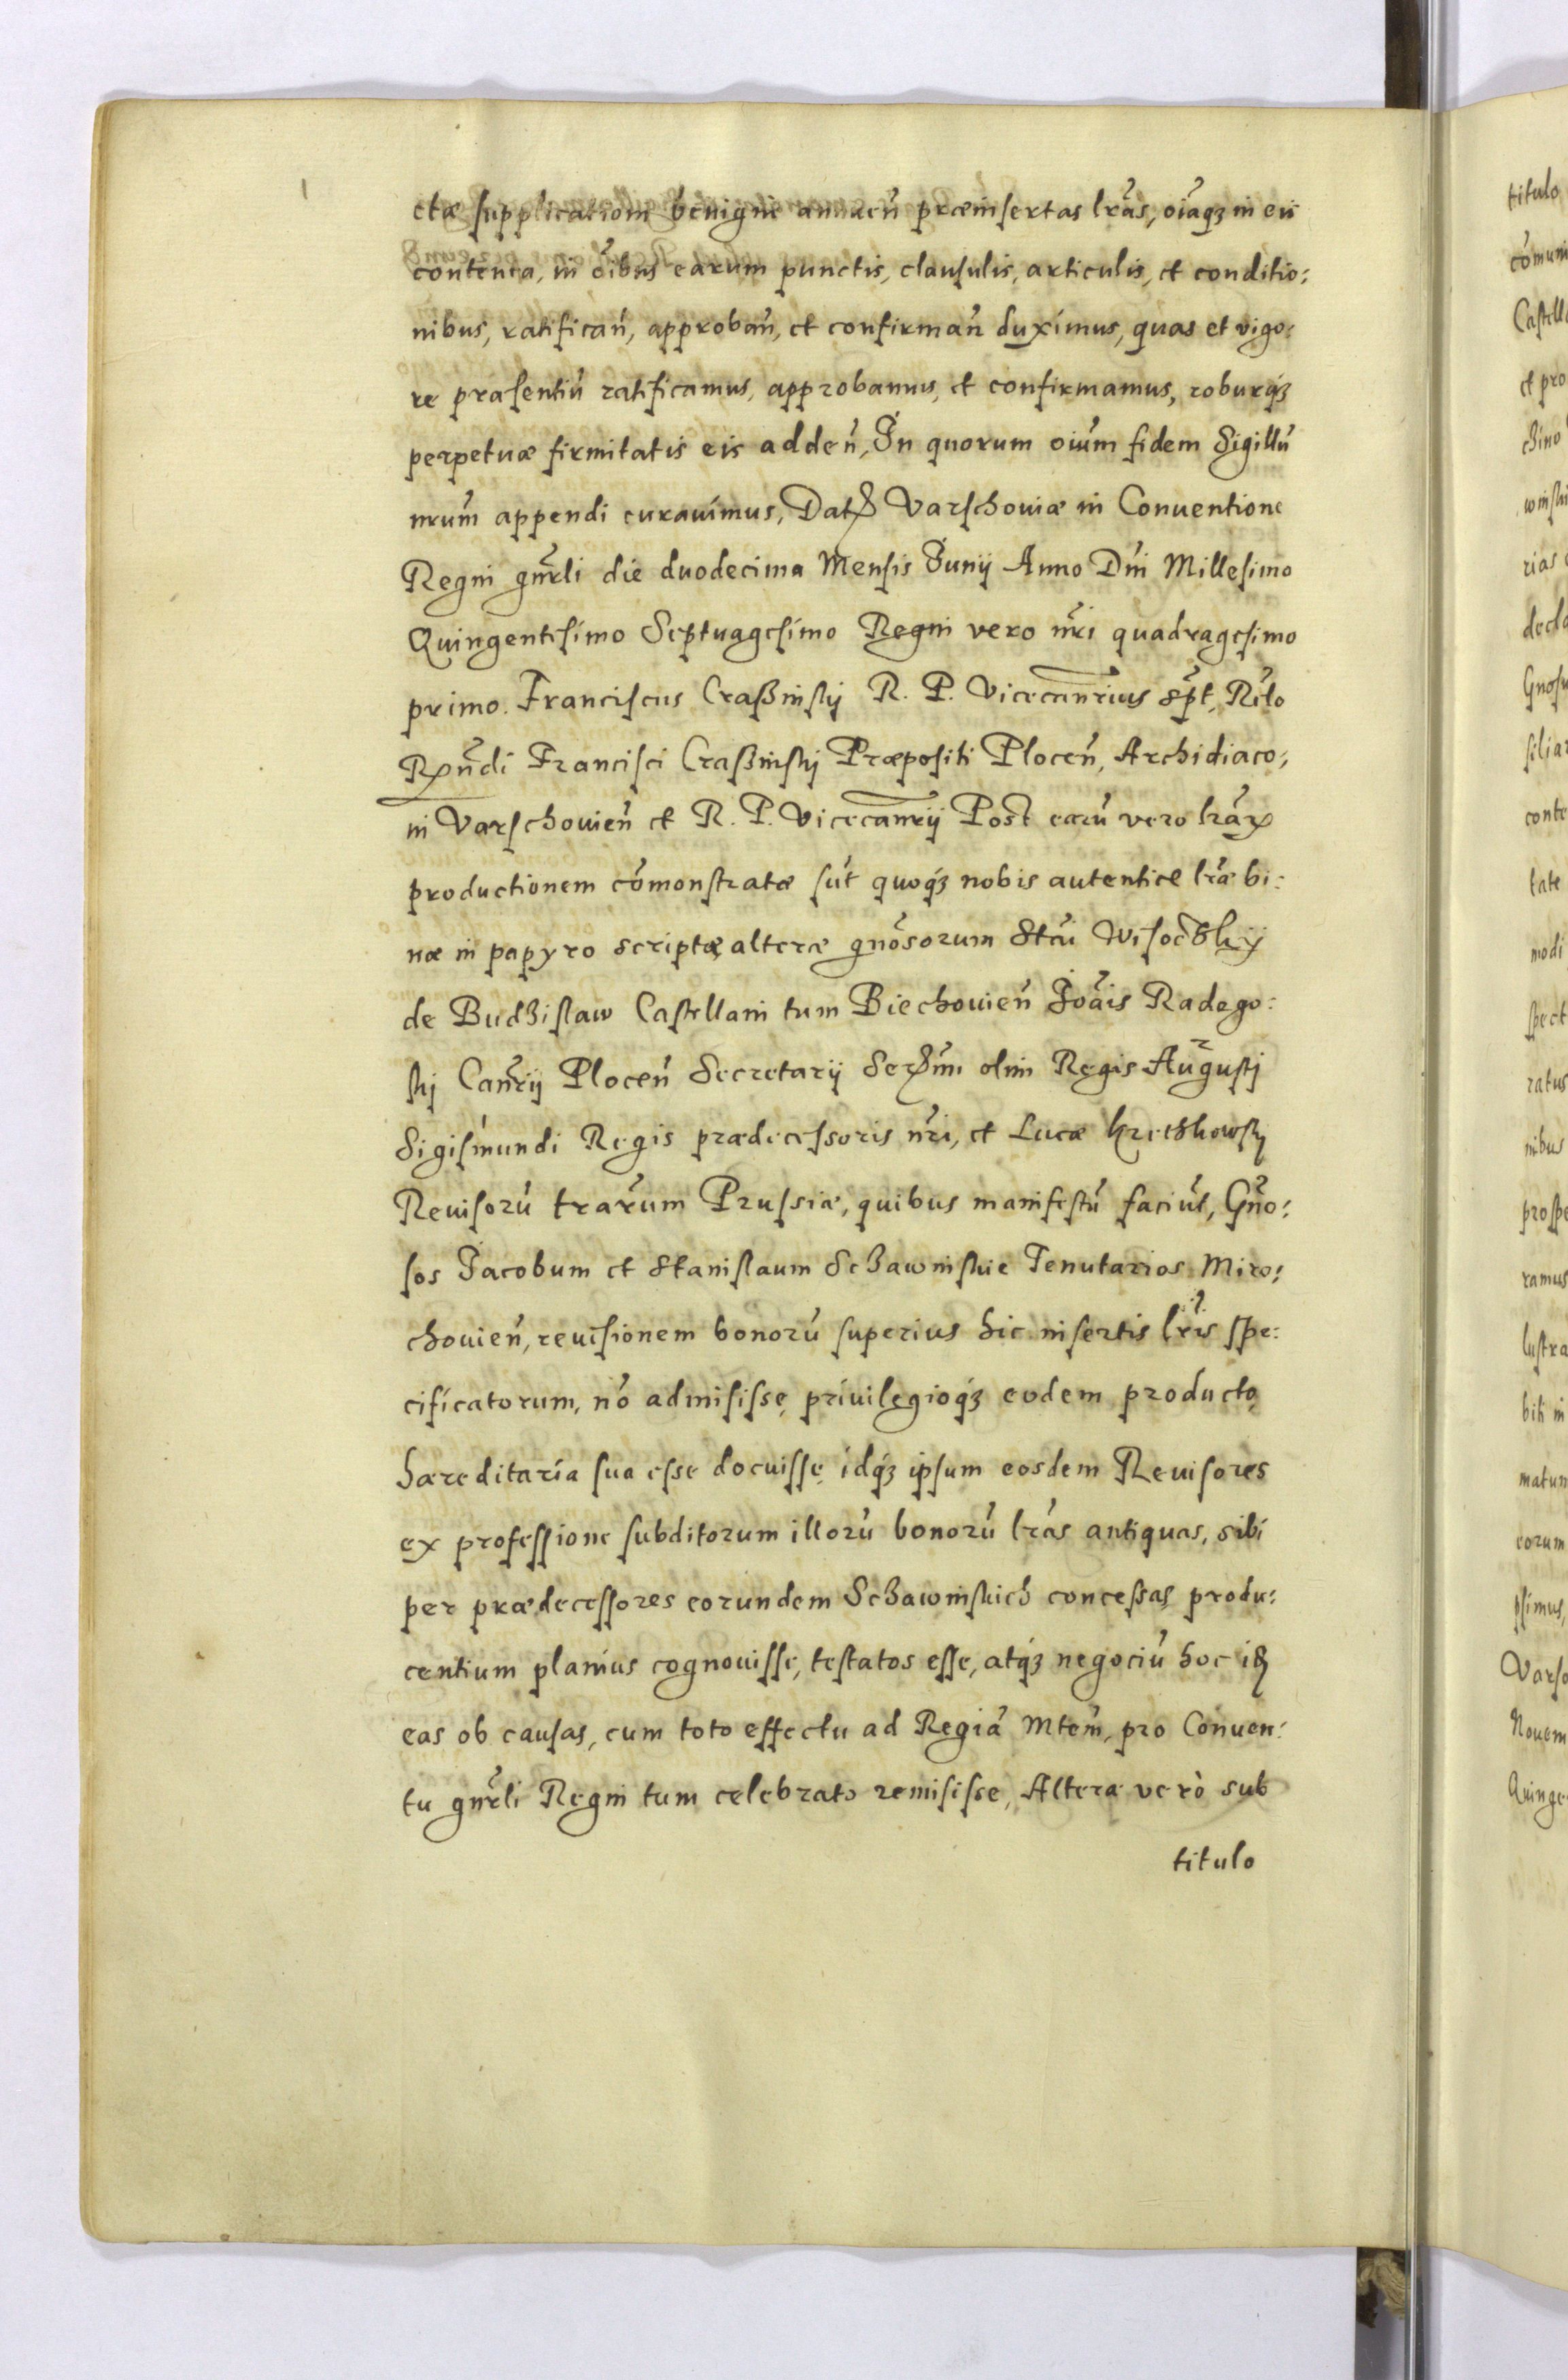 ctæ supplicationi benigne annuen̄ præinsertas lr̄as, oīaqꝫ in eis
contenta, in oībus earum punctis, clausulis, articulis, et conditio:
nibus, ratifican̄, approban̄, et confirman̄ duximus, quas et vigo:
re præsentiū ratificamus, approbamus, et confirmamus, roburqꝫ
perpetuæ firmitatis eis adden̄, In quorum oīum fidem Sigillū
nrūm appendi curauimus, Datꝭ Varschouiæ in Conuentione
Regni gnr̄li die duodecima Mensis Junij Anno Dn̄i Millesimo
Quingentesimo Septuagesimo Regni vero nr̄i quadragesimo
primo. Franciscus Craßinskj R. P. Vicecanr̄ius sp̄t, Rēlo
Rꝑn̄di Francisci Craßinskj Præpositi Plocen̄, Archidiaco:
ni Varschouien̄ et R. P. Vicecanr̄ij Post earū vero lr̄aꝝ
productionem cōmonstratæ sūt quoqꝫ nobis autenticæ lr̄æ bi:
næ in papyro scriptæ, alteræ gnōsorum Stāi Wisoczkij
de Budzislaw Castellani tum Biechouien̄ Joāis Radego:
skj Canr̄ij Plocen̄ Secretarij Serꝭmi olim Regis Augustj
Sigismundi Regis prædecessoris nr̄i, et Lucæ Kreczkowskj
Reuisorū trārum Prussiæ, quibus manifestū faciūt, Gn̄o:
sos Jacobum et Stanislaum Sczawinskie Tenutarios Miro:
chouien̄, reuisionem bonorū superius hic insertis lr̄is spe:
cificatorum, nō admisisse, priuilegioqꝫ eodem producto
hæreditaria sua esse docuisse, idqꝫ ipsum eosdem Reuisores
ex professione subditorum illorū bonorū lr̄as antiquas, sibi
per prædecessores eorundem Sczawinskich concessas, produ:
centium planius cognouisse, testatos esse, atqꝫ negociū hoc iꝭ
eas ob causas, cum toto effectu ad Regiā Mtem̄, pro Conuen:
tu gnr̄li Regni tum celebrato remisisse, Alteræ verò sub
titulo
titulo
cōmuni
et pro
rias
tate
modi
ratus
nibus
ramus
biti in
eorum
Nouem